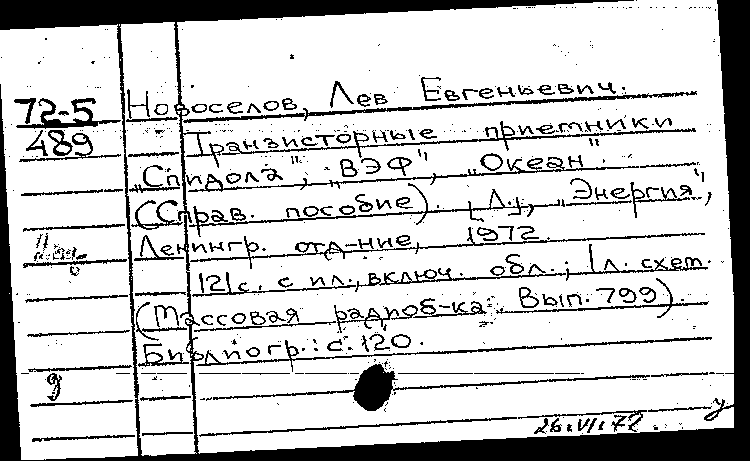 72-5 Новоселов, Лев Евгеньевич.
489 Транзисторные приемники
„Спидола", „ВЭФ", „Океан".
(Справ. пособие). [Л.], „Энергия",
Ленингр. отд-ние, 1972.
121с. с ил., включ. обл.; 1л. схем.
(Массовая радиоб-ка. Вып. 799).
Библиогр.: с. 120.
д
26.VI.72. у